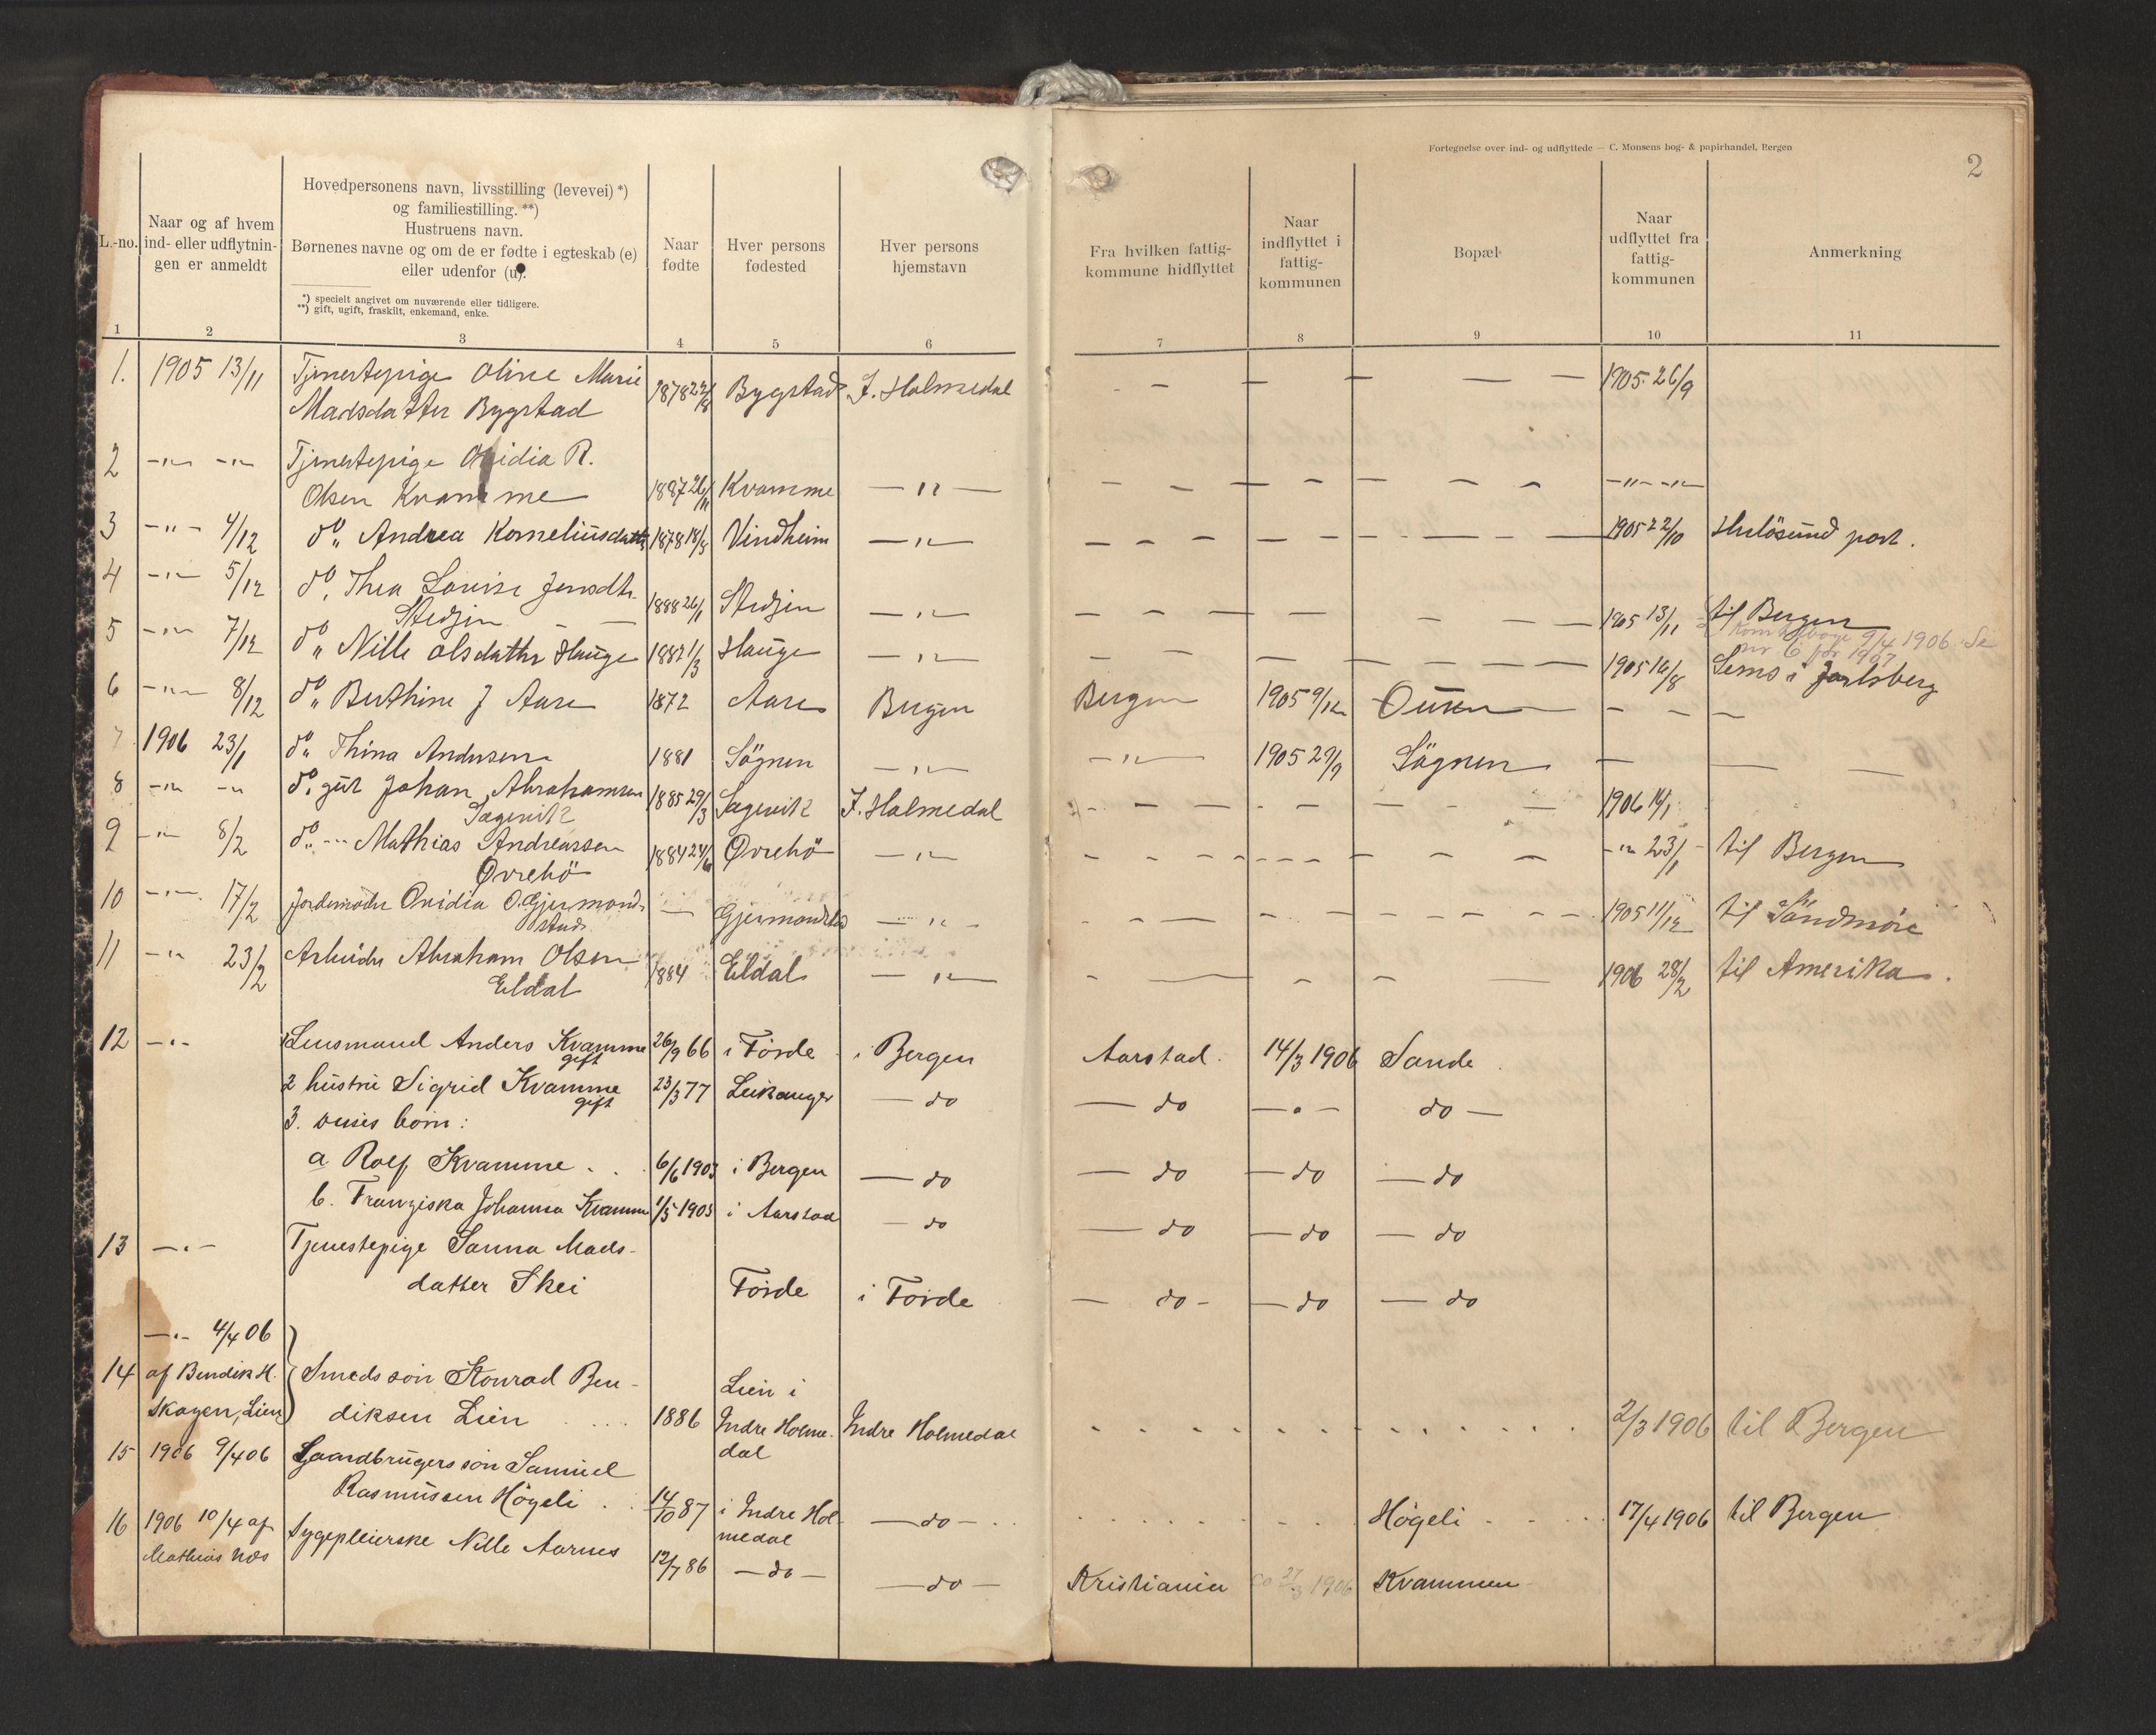 Fortegnelse over ind- og udflyttede — C. Monsens bog- & papirhandel, Bergen
2
L.-no.
Naar og af hvem
ind- eller udflytnin-
gen er anmeldt
Hovedpersonens navn, livsstilling (levevei) *)
og familiestilling. **)
Hustruens navn.
Børnenes navne og om de er fødte i egteskab (e)
eller udenfor (u).
*) specielt angivet om nuværende eller tidligere.
**) gift, ugift, fraskilt, enkemand, enke.
Naar
fødte
Hver persons
fødested
Hver persons
hjemstavn
Fra hvilken fattig-
kommune hidflyttet
Naar
indflyttet i
fattig-
kommunen
Bopæl
Naar
udflyttet fra
fattig-
kommunen
Anmerkning
1 2 3 4 5 6 7 8 9 10 11
1. 1905 13/11 Tjenestepige Oline Marie 1878 22/8 Bygstad J. Holmedal — — — — — 1905 26/9
Madsdatter Bygstad
2 —"— —"— Tjenestepige Ovidia R.
Olsen Kvamme 1887 26/11 Kvamme —"— — — — — — — — —"— —"—
3 —"— 4/12 do Andrea Korneliusdatter 1878 18/5 Vindheim —"— — — — — — — — 1905 22/10 post.
4 —"— 5/12 do Thea Lovise Jensdtr.
Stedjin 1888 26/1 Stedjin —"— — — — — — — 1905 13/11 til Bergen
9/4 1906 Se
nr 6 for 1907
5 —"— 7/12 do Nille Olsdatter Hauge 1882 1/3 Hauge —"— — — — — — — 1905 16/8 Sems i Jarlsberg
6 —"— 8/12 do Berthine J Aare 1872 Aare Bergen Bergen 1905 9/12 — — —
7 1906 23/1 do Thina Andersen 1881 Sögnen —"— —"— 1905 29/9 Sögnen — — —
8 —"— —"— do gut Johan Abrahamsen 1885 29/3 Sagevik J. Holmedal — — — — — — 1906 14/1
Sagevik
9 —"— 8/2 do —"— Mathias Andreassen 1884 24/6 Øvrehö —"— — — — — — — —"— 23/1 til Bergen
Øvrehö
10 —"— 17/2 Jordemoder Ovidia O. Gjermond- — Gjermondstad —"— — — — — — — 1905 11/12 til Söndmöre
stad
11 —"— 23/2 Arbeider Abraham Olsen 1884 Eldal —"— — — — — — 1906 28/2 til Amerika.
Eldal
12 —"— 1 Lensmand Anders Kvamme 26/9 66 i Förde i Bergen Aarstad. 14/3 1906 Sande
gift
2 hustru Sigrid Kvamme 23/3 77 Leikanger — do — do —"— do —
gift
3. deres börn:
a Rolf Kvamme . . 6/6 1903 i Bergen — do — do — do — do
b. Franziska Johanna Kvamme 1/5 1905 i Aarstad — do — do — do — do
13 —"— Tjenestepige Sanna Mads-
datter Skei Förde i Förde — do — — do — do
—"— 4/4 06
14 af Bendik H. Smeds sön Konrad Ben- Lien i
Skagen, Lien diksen Lien . . . . 1886 Indre Holme- Indre Holmedal 2/3 1906 til Bergen
dal
15 1906 9/4 06 Gaardbrugers sön Samuel
Rasmussen Högeli . . 14/10 87 i Indre Hol- — do — Högeli 17/4 1906 til Bergen
medal
16 1906 10/4 af Sygepleierske Nille Aarnes
Mathias 12/7 86 — do — — do — Kristiania 27/3 1906 Kvammen